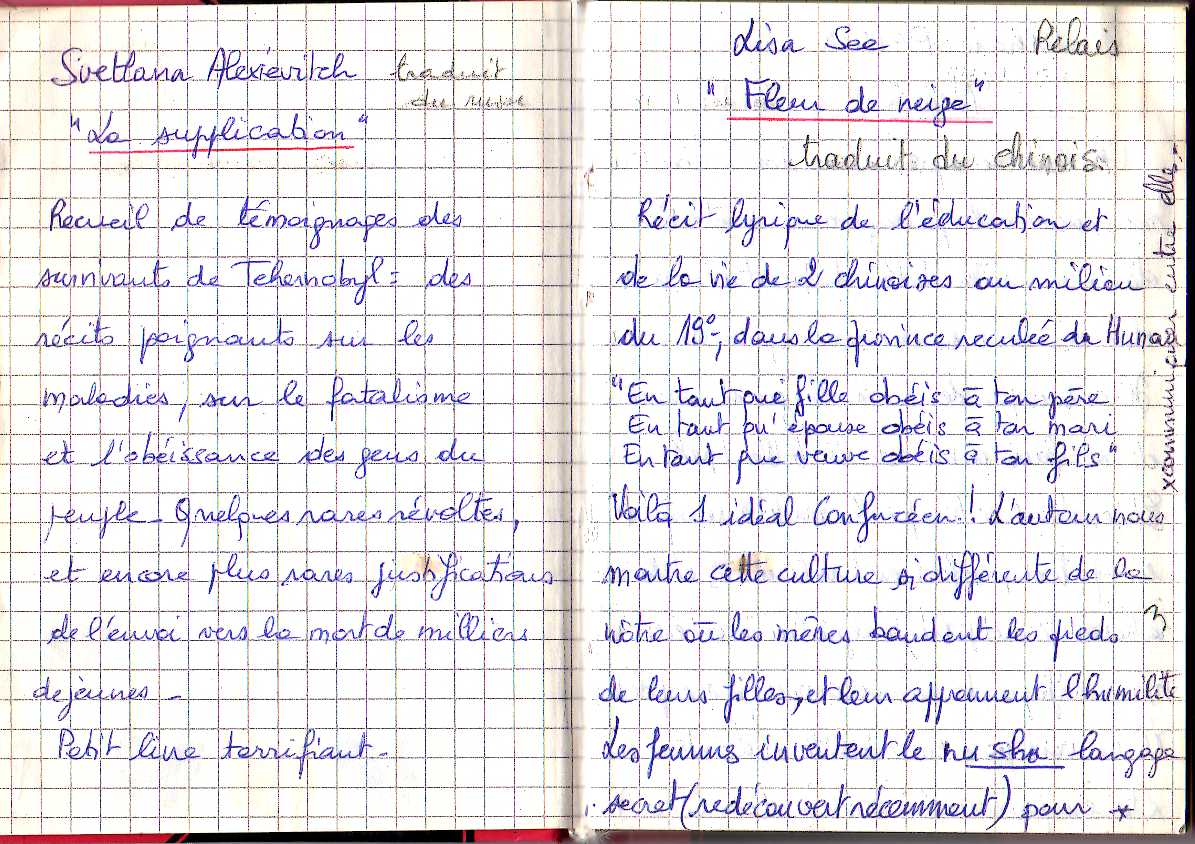 Svetlana Alexiévitch traduit
du russe
"La supplication"
Recueil de témoignages des
survivants de Tchernobyl : des
récits poignants sur les
maladies, sur le fatalisme
et l'obéissance des gens du
peuple - Quelques rares révoltes,
et encore plus rares justifications
de l'envoi vers la mort de milliers
de jeunes -
Petit livre terrifiant -
Lisa See Relais
"Fleur de neige"
traduit du chinois.
Récit lyrique de l'éducation et
de la vie de 2 chinoises au milieu
du 19°-, dans la province reculée du Hunan
"En tant que fille obéis à ton père
En tant qu'épouse obéis à ton mari
En tant que veuve obéis à ton fils"
Voilà 1 idéal Confucéen ! L'auteur nous
montre cette culture si différente de la
nôtre où les mères bandent les pieds 3
de leurs filles, et leur apprennent l'humilité
Les femmes inventent le nu shu langage
secret (redécouvert récemment) pour *
x communiquer entre elles.-